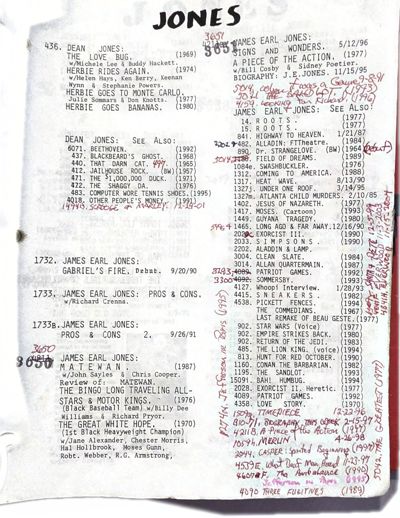 JONES
436. DEAN JONES:
THE LOVE BUG. (1969)
w/Michele Lee & Buddy Hackett.
HERBIE RIDES AGAIN. (1974)
w/Helen Hays, Ken Berry, Keenan
Wynn & Stephanie Powers.
HERBIE GOES TO MONTE CARLO.
Julie Sommars & Don Knotts. (1977)
HERBIE GOES BANANAS. (1980)
DEAN JONES: See Also:
6071. BEETHOVEN. (1992)
437. BLACKBEARD'S GHOST. (1968)
440. THAT DARN CAT. (1965)
412. JAILHOUSE ROCK. (BW) (1957)
471. THE $1,000,000 DUCK. (1971)
422. THE SHAGGY DA. (1976)
483. COMPUTER WORE TENNIS SHOES. (1995)
4018. OTHER PEOPLE'S MONEY. (1991)
1732. JAMES EARL JONES:
GABRIEL'S FIRE. Debut. 9/20/90
1733. JAMES EARL JONES: PROS & CONS.
w/Richard Crenna.
1733a. JAMES EARL JONES:
PROS & CONS 2. 9/26/91
3650
JAMES EARL JONES:
MATEWAN. (1987)
w/John Sayles & Chris Cooper.
Review of: MATEWAN.
THE BINGO LONG TRAVELING ALL-
STARS & MOTOR KINGS. (1976)
(Black Baseball Team) w/Billy Dee
Williams & Richard Pryor.
THE GREAT WHITE HOPE. (1970)
(1st Black Heavyweight Champion)
w/Jane Alexander, Chester Morris,
Hal Hollbrook, Moses Gunn,
Robt. Webber, R.G. Armstrong,
3651
3651
JAMES EARL JONES:
SIGNS AND WONDERS. 5/12/96
A PIECE OF THE ACTION. (1977)
w/Bill Cosby & Sidney Poetier.
BIOGRAPHY: J.E.JONES. 11/15/95
JAMES EARL JONES: SEE ALSO:
14. ROOTS. (1977)
15. ROOTS. (1977)
841. HIGHWAY TO HEAVEN. 1/21/87
482. ALADIN: FTTheatre. (1984)
890. Dr. STRANGELOVE. (BW) (1964)
FIELD OF DREAMS. (1989)
1084e. SWASHBUCKLER. (1976)
1312. COMING TO AMERICA. (1988)
1317. HEAT WAVE. 8/13/90
1327j. UNDER ONE ROOF. 3/14/95
1327m. ATLANTA CHILD MURDERS. 2/10/85
1402. JESUS OF NAZARETH. (1977)
1417. MOSES. (Cartoon) (1993)
1449. GUYANA TRAGEDY. (1980)
1465. LONG AGO & FAR AWAY. 12/16/90
EXORCIST III. (1990)
2033. SIMPSONS. (1990)
2202. ALADDIN & LAMP.
3004. CLEAN SLATE. (1984)
3014. ALLAN QUARTERMAIN. (1987)
PATRIOT GAMES. (1992)
3300 SOMMERSBY. (1993)
4127. Whoopi Interview. 1/28/93
4415. SNEAKERS. (1982)
4538. PICKETT FENCES. (1994)
THE COMEDIANS. (1967)
LAST REMAKE OF BEAU GESTE. (1977)
902. STAR WARS (Voice) (1977)
902. EMPIRE STRIKES BACK. (1980)
902. RETURN OF THE JEDI. (1983)
485. THE LION KING. (voice) (1994)
813. HUNT FOR RED OCTOBER. (1990)
1160. CONAN THE BARBARIAN. (1982)
1195. THE SANDLOT. (1993)
15091. BAH! HUMBUG. (1994)
2028. EXORCIST II. Heretic. (1977)
4089. PATRIOT GAMES. (1992)
4358. LOVE STORY. (1970)
TIMEPIECE 12-22-96
BIOGRAPHY, THIS WEEK 2-15-97
A Piece of the Action (1977)
MERLIN 4-26-98
2044. CASPER: Spirited Beginning (1997)
Jefferson in Paris (1995)
4090 THREE FUGITIVES (1989)
5042. THE GREATEST (1977)